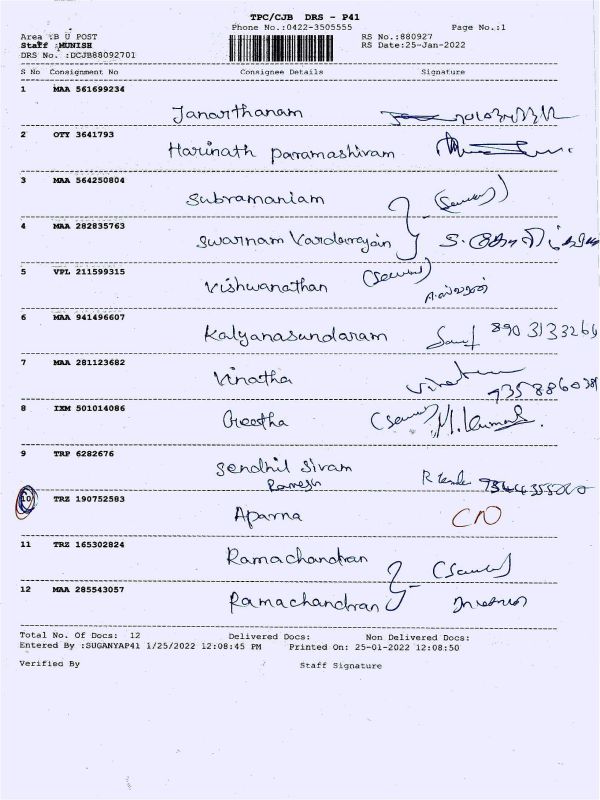 TPC/CJB DRS - P41
Phone No.:0422-3505555 Page No.:1
Area :B U POST RS No.:880927
Staff :MUNISH RS Date:25-Jan-2022
DRS No. :DCJB88092701
S No Consignment No Consignee Details Signature
1 MAA 561699234
Janarthanam
2 OTY 3641793
Harinath Paramashivam
3 MAA 564250804
Subramaniam
4 MAA 282835763
Swarnam
5 VPL 211599315
Vishwanathan
6 MAA 941496607
Kalyanasundaram
7 MAA 281123682
Vinotha
8 IXM 501014086
Geetha
9 TRP 6282676
Sendhil Sivam
Ramesh
10 TRZ 190752583
Aparna
11 TRZ 165302824
Ramachandran
12 MAA 285543057
Ramachandran
Total No. Of Docs: 12 Delivered Docs: Non Delivered Docs:
Entered By :SUGANYAP41 1/25/2022 12:08:45 PM Printed On: 25-01-2022 12:08:50
Verified By Staff Signature